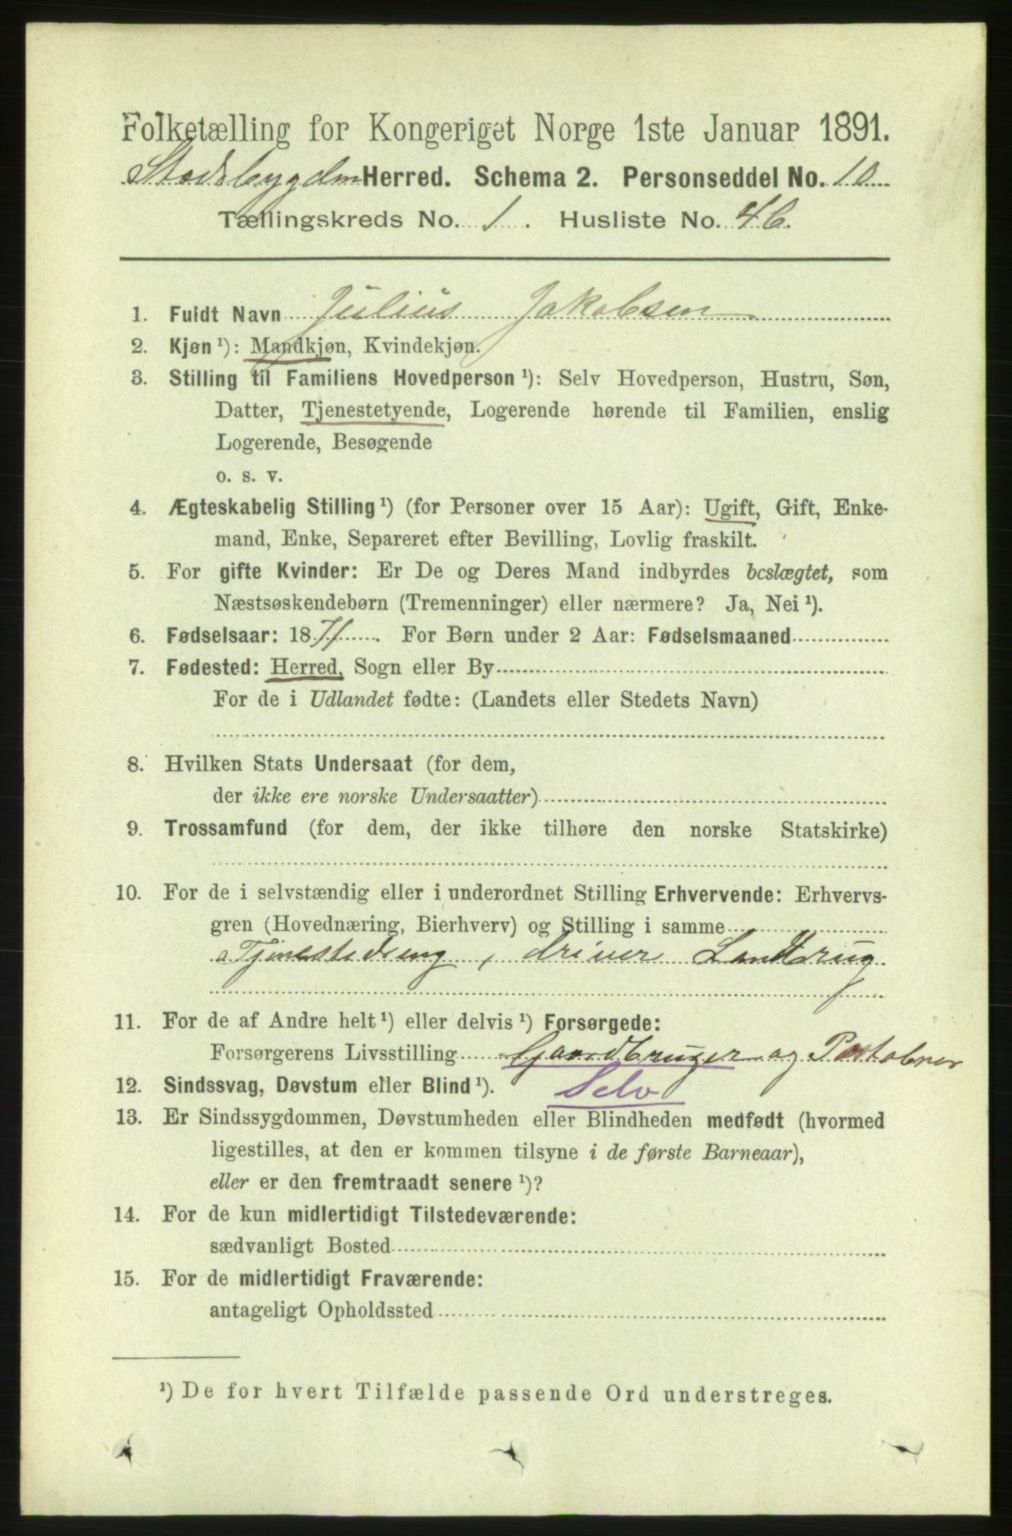 Folketælling for Kongeriget Norge 1ste Januar 1891.
Stadsbygden Herred. Schema 2. Personseddel No. 10
Tællingskreds No. 1. Husliste No. 46.
1. Fuldt Navn Julius Jakobsen
2. Kjøn ¹): Mandkjøn, Kvindekjøn.
3. Stilling til Familiens Hovedperson ¹): Selv Hovedperson, Hustru, Søn,
Datter, Tjenestetyende, Logerende hørende til Familien, enslig
Logerende, Besøgende
o. s. v.
4. Ægteskabelig Stilling ¹) (for Personer over 15 Aar): Ugift, Gift, Enke-
mand, Enke, Separeret efter Bevilling, Lovlig fraskilt.
5. For gifte Kvinder: Er De og Deres Mand indbyrdes beslægtet, som
Næstsøskendebørn (Tremenninger) eller nærmere? Ja, Nei ¹).
6. Fødselsaar: 1871. For Børn under 2 Aar: Fødselsmaaned
7. Fødested: Herred, Sogn eller By
For de i Udlandet fødte: (Landets eller Stedets Navn)
8. Hvilken Stats Undersaat (for dem,
der ikke ere norske Undersaatter)
9. Trossamfund (for dem, der ikke tilhøre den norske Statskirke)
10. For de i selvstændig eller i underordnet Stilling Erhvervende: Erhvervs-
gren (Hovednæring, Bierhverv) og Stilling i samme
Tjenestedreng, driver Landbrug
11. For de af Andre helt ¹) eller delvis ¹) Forsørgede:
Forsørgerens Livsstilling Gaardbruger og
12. Sindssvag, Døvstum eller Blind ¹). Selv
13. Er Sindssygdommen, Døvstumheden eller Blindheden medfødt (hvormed
ligestilles, at den er kommen tilsyne i de første Barneaar),
eller er den fremtraadt senere ¹)?
14. For de kun midlertidigt Tilstedeværende:
sædvanligt Bosted
15. For de midlertidigt Fraværende:
antageligt Opholdssted
¹) De for hvert Tilfælde passende Ord understreges.